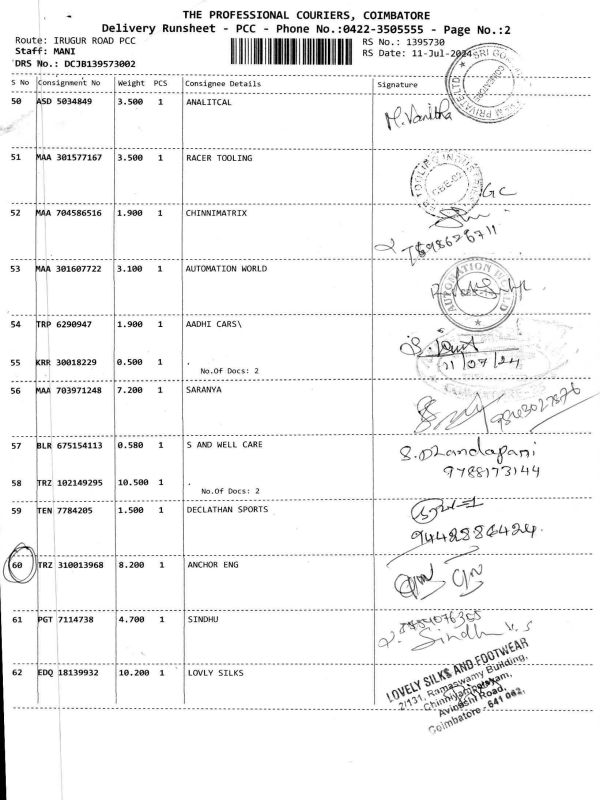 THE PROFESSIONAL COURIERS, COIMBATORE
Delivery Runsheet - PCC - Phone No.:0422-3505555 - Page No.:2
Route: IRUGUR ROAD PCC
Staff: MANI
DRS No.: DCJB139573002
RS No.: 1395730
RS Date: 11-Jul-2024
S No Consignment No Weight PCS Consignee Details Signature
50 ASD 5034849 3.500 1 ANALITCAL
M. Vanitha
51 MAA 301577167 3.500 1 RACER TOOLING
GC
52 MAA 704586516 1.900 1 CHINNIMATRIX
53 MAA 301607722 3.100 1 AUTOMATION WORLD
AUTOMATION WORLD
54 TRP 6290947 1.900 1 AADHI CARS\
11/07/24
55 KRR 30018229 0.500 1 .
No.Of Docs: 2
56 MAA 703971248 7.200 1 SARANYA
57 BLR 675154113 0.580 1 S AND WELL CARE
S. Dhandapani
9788173144
58 TRZ 102149295 10.500 1 .
No.Of Docs: 2
59 TEN 7784205 1.500 1 DECLATHAN SPORTS
9442886424
60 TRZ 310013968 8.200 1 ANCHOR ENG
61 PGT 7114738 4.700 1 SINDHU
Sindhu K.S
62 EDQ 18139932 10.200 1 LOVLY SILKS
LOVELY SILKS AND FOOTWEAR
2/131, Ramaswamy Building,
Chinniyampalayam,
Avinashi Road,
Coimbatore - 641 062.